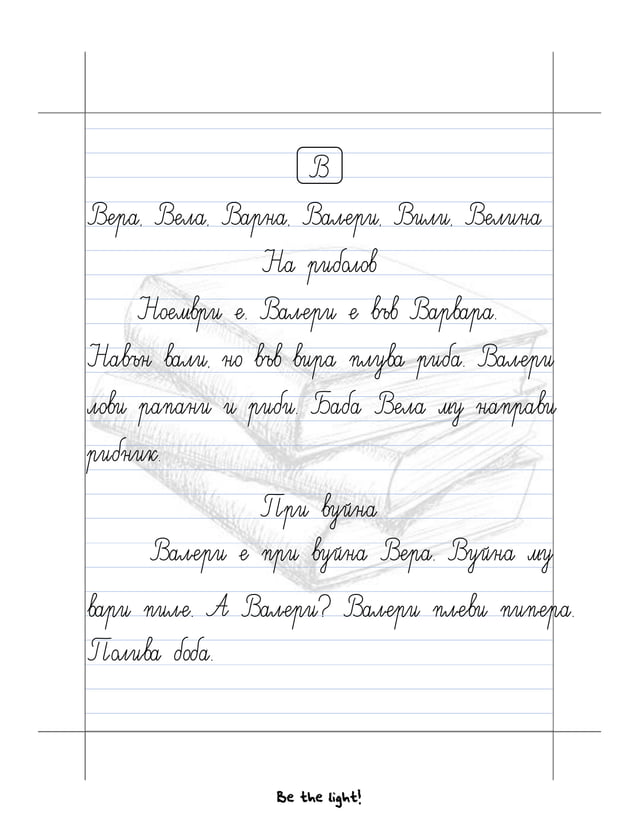 В
Вера, Вела, Варна, Валери, Вили, Велина
На риболов
Ноември е. Валери е във Варвара.
Навън вали, но във вира плува риба. Валери
лови рапани и риби. Баба Вела му направи
рибник.
При вуйна
Валери е при вуйна Вера. Вуйна му
вари пиле. А Валери? Валери плеви пипера.
Полива боба.
Be the light!